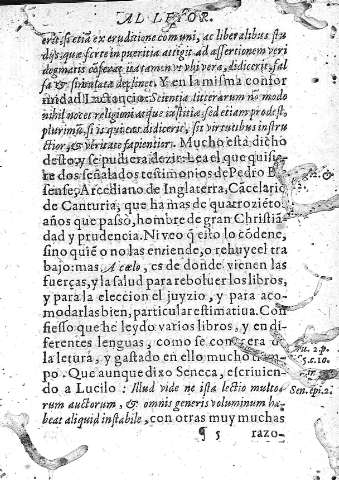 AL LETOR.
erit, si etiã ex eruditione comuni, ac liberalibus stu-
dijs, quæ forte in pueritia attigit ad assertionem veri
dogmatis cõferat ita tamen vt vbi vera, didicerit, fal
sa & simulata declinet. Y en la misma confor
midad Lactancio: Scientia litterarum nõ modo
nihil nocet religioni atque iustitiæ, sed etiam prodest,
plurimũ, si is qui eas didicerit, sit virtutibus instru
ctior, & veritate sapientior. Mucho està dicho
desto, y se pudiera dezir. Lea el que quisie
re dos señalados testimonios de Pedro B
sense, Arcediano de Inglaterra, Cãcelario
de Canturia, que ha mas de quatroziẽtos
años que passò, hombre de gran Christiã
dad y prudencia. Ni veo q̃ esto lo cõdene,
sino quiẽ o no las entiende, o rehuye el tra
bajo: mas A cælo, es de donde vienen las
fuerças, y la salud para reboluer los libros,
y para la eleccion el juyzio, y para aco-
modarlas bien, particular estimatiua. Con
fiesso que he leydo varios libros, y en di-
ferentes lenguas, como se con era
la letura, y gastado en ello mucho
po. Que aunque dixo Seneca, escriuien-
do a Lucilo: Illud vide ne ista lectio multo-
rum auctorum, & omnis generis voluminum ha-
beat aliquid instabile, con otras muy muchas
¶ 5 razo-
2. p.
5. c. 10.
Sen. epi. 2.